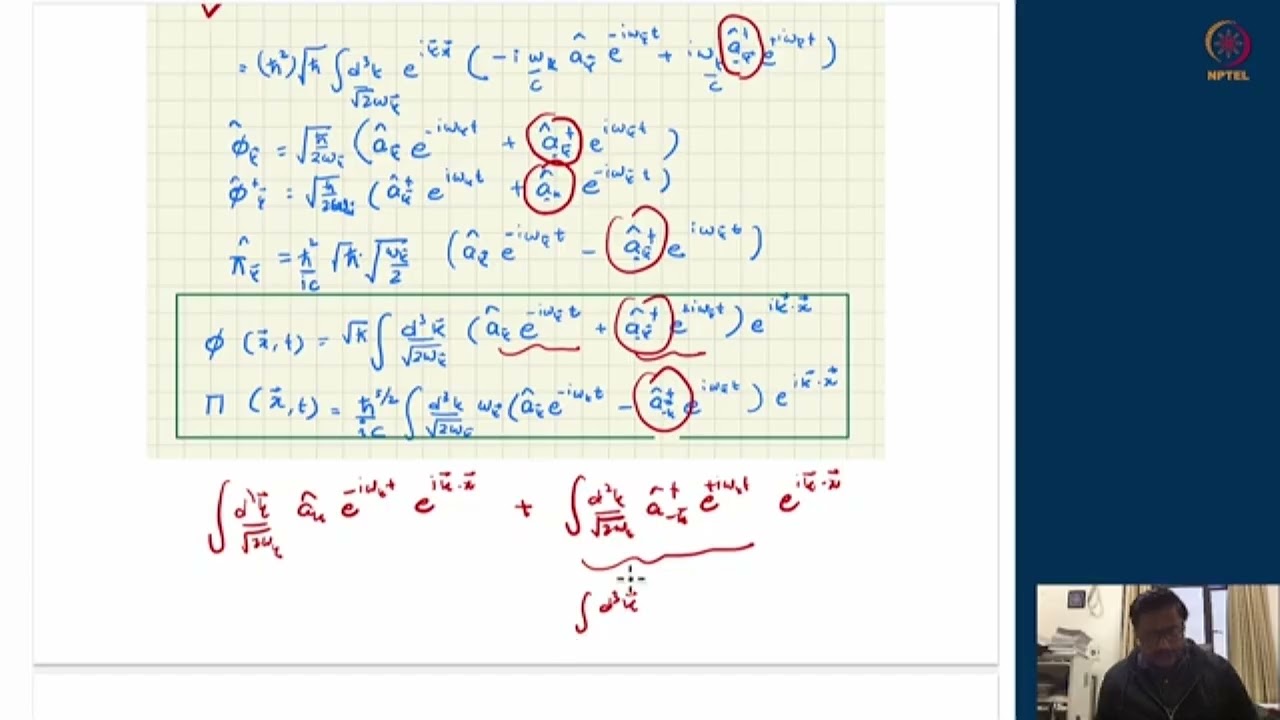 = (ħ²)√ħ ∫ d³k/√2ω_k⃗ e^{ik⃗x⃗} ( -i ω_k/c â_k⃗ e^{-iω_k⃗ t} + i ω_k/c â†_k⃗ e^{+iω_k⃗ t} )
NPTEL
φ̂_k⃗ = √ħ/2ω_k⃗ ( â_k⃗ e^{-iω_k t} + â†_k⃗ e^{iω_k⃗ t} )
φ̂†_k⃗ = √ħ/2ω_k⃗ ( â†_k⃗ e^{iω_k t} + â_-k e^{-iω_k⃗ t} )
π̂_k⃗ = ħ²/ic √ħ √ω_k⃗/2 ( â_k⃗ e^{-iω_k⃗ t} - â†_k⃗ e^{iω_k⃗ t} )
φ (x⃗, t) = √ħ ∫ d³k⃗/√2ω_k⃗ ( â_k⃗ e^{-iω_k⃗ t} + â†_-k⃗ e^{+iω_k⃗ t} ) e^{ik⃗·x⃗}
Π (x⃗, t) = ħ^{5/2}/ic ∫ d³k/√2ω_k⃗ ω_k⃗ ( â_k⃗ e^{-iω_k t} - â†_-k⃗ e^{iω_k⃗ t} ) e^{ik⃗·x⃗}
∫ d³k⃗/√2ω_k⃗ â_k e^{-iω_k t} e^{ik⃗·x⃗} + ∫ d³k/√2ω_k â†_-k⃗ e^{+iω_k t} e^{ik⃗·x⃗}
∫ d³k⃗